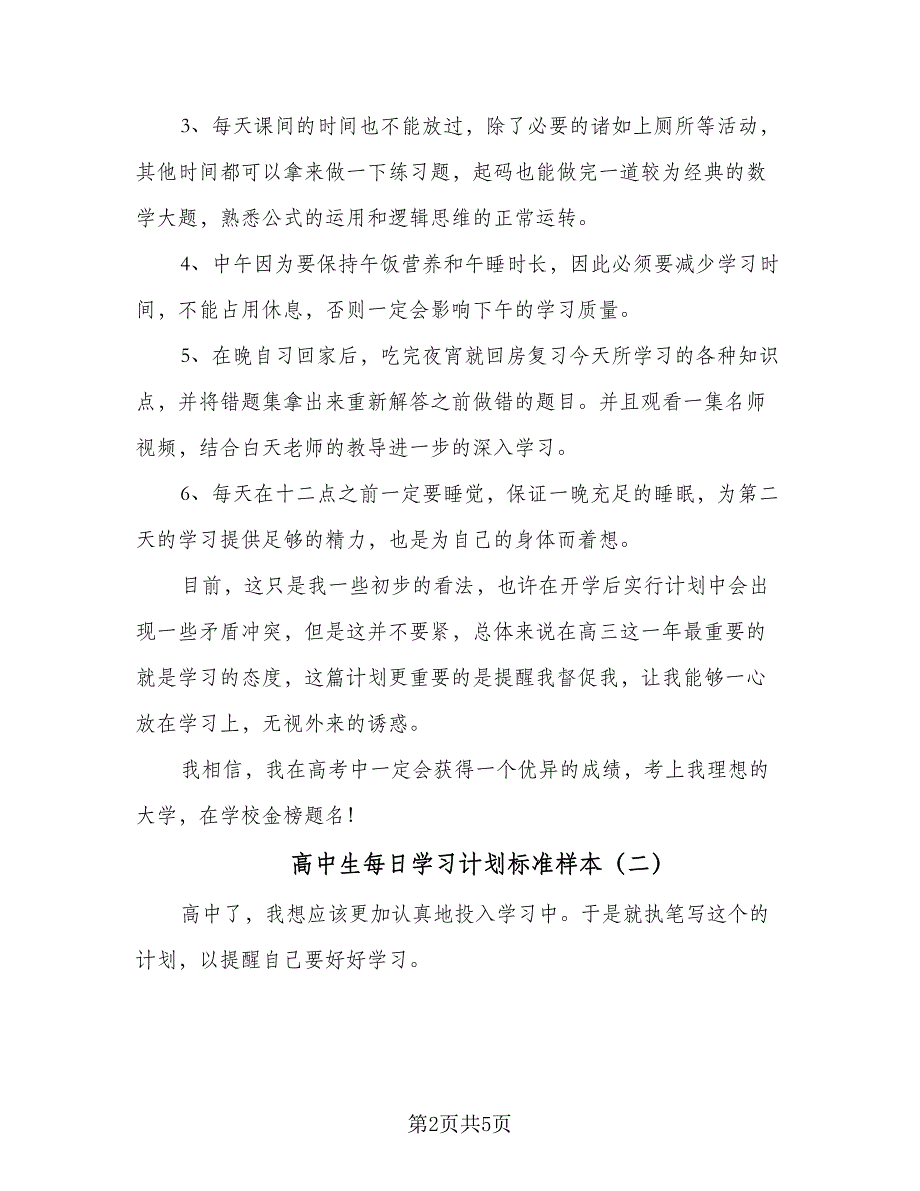 3、每天课间的时间也不能放过，除了必要的诸如上厕所等活动，
其他时间都可以拿来做一下练习题，起码也能做完一道较为经典的数
学大题，熟悉公式的运用和逻辑思维的正常运转。
4、中午因为要保持午饭营养和午睡时长，因此必须要减少学习时
间，不能占用休息，否则一定会影响下午的学习质量。
5、在晚自习回家后，吃完夜宵就回房复习今天所学习的各种知识
点，并将错题集拿出来重新解答之前做错的题目。并且观看一集名师
视频，结合白天老师的教导进一步的深入学习。
6、每天在十二点之前一定要睡觉，保证一晚充足的睡眠，为第二
天的学习提供足够的精力，也是为自己的身体而着想。
目前，这只是我一些初步的看法，也许在开学后实行计划中会出
现一些矛盾冲突，但是这并不要紧，总体来说在高三这一年最重要的
就是学习的态度，这篇计划更重要的是提醒我督促我，让我能够一心
放在学习上，无视外来的诱惑。
我相信，我在高考中一定会获得一个优异的成绩，考上我理想的
大学，在学校金榜题名！
高中生每日学习计划标准样本（二）
高中了，我想应该更加认真地投入学习中。于是就执笔写这个的
计划，以提醒自己要好好学习。
第2页共5页